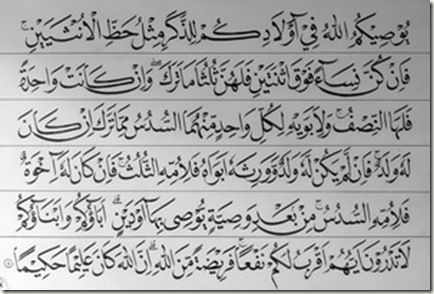 يُوْصِيْكُمُ اللّٰهُ فِيْٓ اَوْلَادِكُمْ لِلذَّكَرِ مِثْلُ حَظِّ الْاُنْثَيَيْنِ ۚ
فَاِنْ كُنَّ نِسَاۤءً فَوْقَ اثْنَتَيْنِ فَلَهُنَّ ثُلُثَا مَا تَرَكَ ۚ وَاِنْ كَانَتْ وَاحِدَةً
فَلَهَا النِّصْفُ ۗ وَلِاَبَوَيْهِ لِكُلِّ وَاحِدٍ مِّنْهُمَا السُّدُسُ مِمَّا تَرَكَ اِنْ كَانَ
لَهٗ وَلَدٌ ۚ فَاِنْ لَّمْ يَكُنْ لَّهٗ وَلَدٌ وَّوَرِثَهٗٓ اَبَوٰهُ فَلِاُمِّهِ الثُّلُثُ ۚ فَاِنْ كَانَ لَهٗٓ اِخْوَةٌ
فَلِاُمِّهِ السُّدُسُ مِنْۢ بَعْدِ وَصِيَّةٍ يُّوْصِيْ بِهَآ اَوْ دَيْنٍ ۗ اٰبَاۤؤُكُمْ وَاَبْنَاۤؤُكُمْ
لَا تَدْرُوْنَ اَيُّهُمْ اَقْرَبُ لَكُمْ نَفْعًا ۗ فَرِيْضَةً مِّنَ اللّٰهِ ۗ اِنَّ اللّٰهَ كَانَ عَلِيْمًا حَكِيْمًا